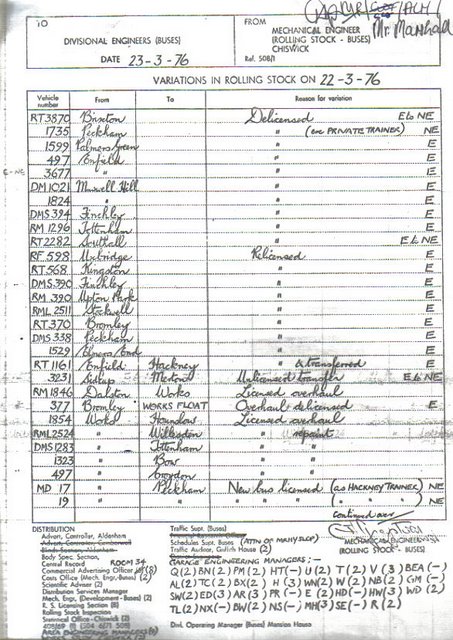 TO
FROM
MECHANICAL ENGINEER
(ROLLING STOCK - BUSES)
CHISWICK
Mr. Marshall
DIVISIONAL ENGINEERS (BUSES)
DATE 23-3-76
Ref. 508/1
VARIATIONS IN ROLLING STOCK ON 22-3-76
Vehicle number From To Reason for variation
RT3870 Brixton Delicensed E to NE
1735 Peckham " (ex PRIVATE TRAINER) NE
1599 Palmers Green " E
497 Enfield " E
E-NE 3677 " " E
DM1021 Muswell Hill " E
1824 " " E
DMS394 Finchley " E
RM1296 Tottenham " E
RT2282 Southall " E to NE
RF598 Uxbridge Relicensed E
RT568 Kingston " E
DMS390 Finchley " E
RM390 Upton Park " E
RML2511 Stockwell " E
RT370 Bromley " E
DMS338 Peckham " E
1529 Elmers End " E
RT1161 Enfield Hackney " & transferred E
3231 Sidcup Merton Unlicensed transfer E to NE
RM1846 Dalston Works Licensed overhaul
377 Bromley WORKS FLOAT Overhaul delicensed E
1854 Works Hounslow Licensed overhaul
RML2524 " Willesden " repaint
DMS1283 " Tottenham " "
1323 " Bow " "
497 " Croydon " "
MD 17 Peckham New bus licensed (as HACKNEY TRAINER) NE
19 " " " " " " NE
continued over
MECHANICAL ENGINEER
(ROLLING STOCK - BUSES)
DISTRIBUTION
Advert. Controller, Aldenham
Body Spec. Section,
Central Record ROOM 34
Commercial Advertising Officer (8)
Costs Office (Mech. Engr.-Buses) (2)
Scientific Adviser (2)
Distribution Services Manager
Mech. Engr. (Development - Buses) (2)
R. S. Licensing Section (8)
Rolling Stock Inspection
Statistical Office - Chiswick (2)
AREA ENGINEERING MANAGERS (6)
Traffic Supt. (Buses)
Schedules Supt. (Buses) (ATTN OF MR HYSLOP)
Traffic Auditor, Griffith House (2)
GARAGE ENGINEERING MANAGERS :-
Q(2) BN(2) PM(2) HT(-) U(2) T(2) V(3) BEA(-)
AL(2) TC(2) BX(2) H(3) WN(2) W(2) NB(2) GM(-)
SW(2) ED(3) AR(3) PR(-) E(2) HD(-) HW(3) WD(2)
TL(2) NX(-) BW(2) NS(-) MH(3) SE(-) R(2)
Divl. Operating Manager (Buses) Mansion House